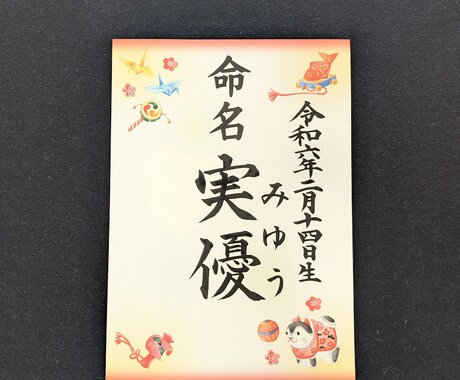 令和六年二月十四日生
命名 実優
みゆう